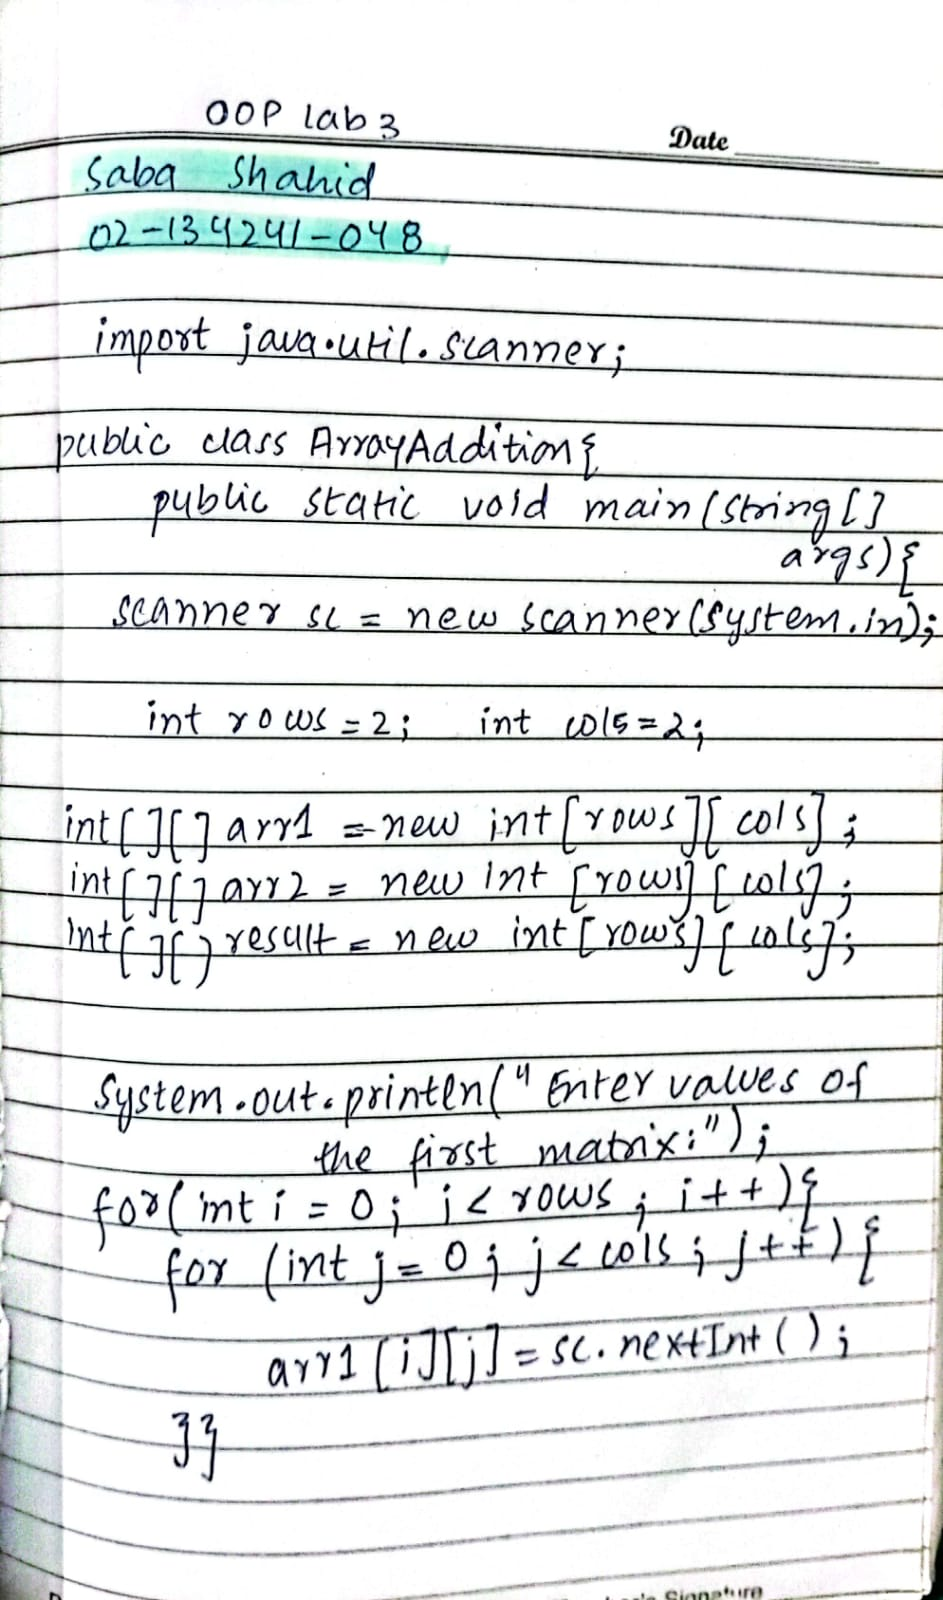 OOP lab 3
Date
Saba Shahid
02-134241-048
import java.util.scanner;
public class ArrayAddition{
public static void main(string[]
args){
scanner sc = new scanner(system.in);
int rows=2; int cols=2;
int[][] arr1 = new int[rows][cols];
int[][] arr2 = new int [rows][cols];
int[][] result = new int[rows][cols];
System.out.println("Enter values of
the first matrix:");
for(int i = 0; i< rows; i++){
for (int j=0; j< cols; j++){
arr1[i][j]=sc.nextInt();
}}
Signature